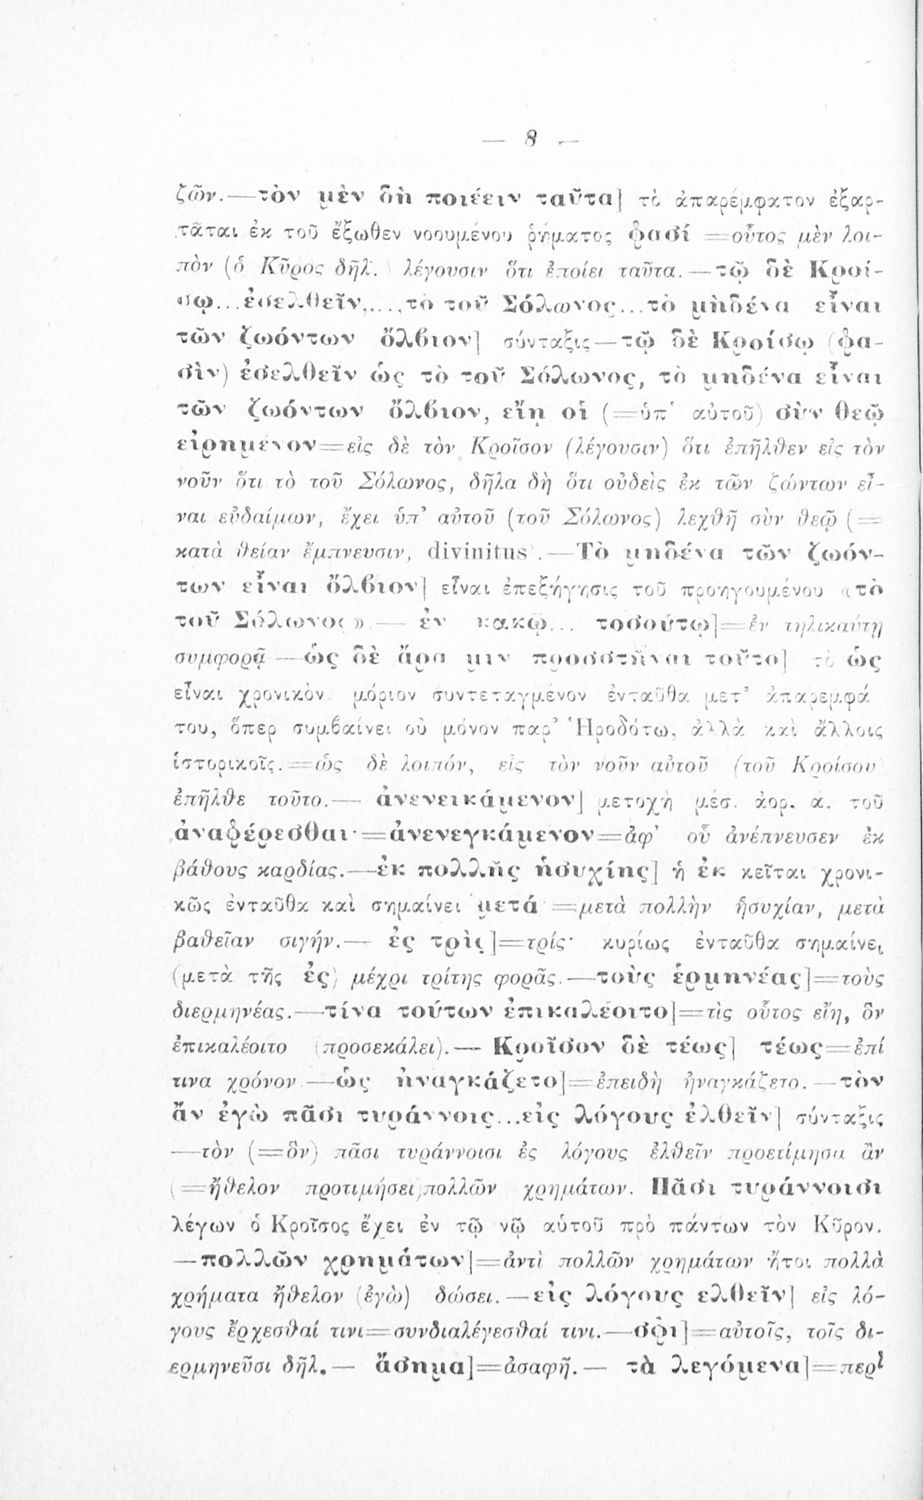 — 8 —
ζῶν.—τὸν μὲν δὴ ποιέειν ταῦτα] τὸ ἀπαρέμφατον ἐξαρ-
τᾶται ἐκ τοῦ ἔξωθεν νοουμένου ῥήματος φασί =οὗτος μὲν λοι-
πὸν (ὁ Κῦρος δηλ. λέγουσιν ὅτι ἐποίει ταῦτα.—τῷ δὲ Κροί-
σῳ...ἐσελθεῖν,...,τὸ τοῦ Σόλωνος...τὸ μηδένα εἶναι
τῶν ζωόντων ὄλβιον] σύνταξις—τῷ δὲ Κροίσῳ (φα-
σὶν) ἐσελθεῖν ὡς τὸ τοῦ Σόλωνος, τὸ μηδένα εἶναι
τῶν ζωόντων ὄλβιον, εἴη οἱ (=ὑπ' αὐτοῦ) σὺν θεῷ
εἰρημένον=εἰς δὲ τὸν Κροῖσον (λέγουσιν) ὅτι ἐπῆλθεν εἰς τὸν
νοῦν ὅτι τὸ τοῦ Σόλωνος, δῆλα δὴ ὅτι οὐδεὶς ἐκ τῶν ζώντων εἶ-
ναι εὐδαίμων, ἔχει ὑπ' αὐτοῦ (τοῦ Σόλωνος) λεχθῆ σὺν θεῷ (=
κατὰ θείαν ἔμπνευσιν, divinitus).—Τὸ μηδένα τῶν ζωόν-
των εἶναι ὄλβιον] εἶναι ἐπεξήγησις τοῦ προηγουμένου «τὸ
τοῦ Σόλωνος».— ἐν κακῷ... τοσούτῳ]=ἐν τηλικαύτῃ
συμφορᾷ—ὡς δὲ ἄρα μιν προσστῆναι τοῦτο] τὸ ὡς
εἶναι χρονικὸν μόριον συντεταγμένον ἐνταῦθα μετ' ἀπαρεμφά
του, ὅπερ συμβαίνει οὐ μόνον παρ' Ἡροδότῳ, ἀλλὰ καὶ ἄλλοις
ἱστορικοῖς.=ὡς δὲ λοιπόν, εἰς τὸν νοῦν αὐτοῦ (τοῦ Κροίσου
ἐπῆλθε τοῦτο.— ἀνενεικάμενον] μετοχὴ μέσ. ἀορ. α. τοῦ
ἀναφέρεσθαι·=ἀνενεγκάμενον=ἀφ' οὗ ἀνέπνευσεν ἐκ
βάθους καρδίας.—ἐκ πολλῆς ἡσυχίης] ἡ ἐκ κεῖται χρονι-
κῶς ἐνταῦθα καὶ σημαίνει μετά =μετὰ πολλὴν ἡσυχίαν, μετὰ
βαθεῖαν σιγήν.— ἐς τρὶς]=τρίς· κυρίως ἐνταῦθα σημαίνει
(μετὰ τῆς ἐς) μέχρι τρίτης φορᾶς.—τοὺς ἑρμηνέας]=τοὺς
διερμηνέας.—τίνα τούτων ἐπικαλέοιτο]=τὶς οὗτος εἴη, ὃν
ἐπικαλέοιτο (προσεκάλει).— Κροῖσον δὲ τέως] τέως=ἐπί
τινα χρόνον—ὡς ἠναγκάζετο]=ἐπειδὴ ἠναγκάζετο.—τὸν
ἂν ἐγὼ πᾶσι τυράννοις...εἰς λόγους ἐλθεῖν] σύνταξις
—τὸν (=ὃν) πᾶσι τυράννοισι ἐς λόγους ἐλθεῖν προετίμησα ἂν
(=ἤθελον προτιμήσει)πολλῶν χρημάτων. Πᾶσι τυράννοισι
λέγων ὁ Κροῖσος ἔχει ἐν τῷ νῷ αὑτοῦ πρὸ πάντων τὸν Κῦρον.
—πολλῶν χρημάτων]=ἀντὶ πολλῶν χρημάτων ἤτοι πολλὰ
χρήματα ἤθελον (ἐγὼ) δώσει.—εἰς λόγους ελθεῖν] εἰς λό-
γους ἔρχεσθαί τινι=συνδιαλέγεσθαί τινι.—σφι]=αὐτοῖς, τοῖς δι-
ερμηνεῦσι δηλ.— ἄσημα]=ἀσαφῆ.— τὰ λεγόμενα]=περὶ